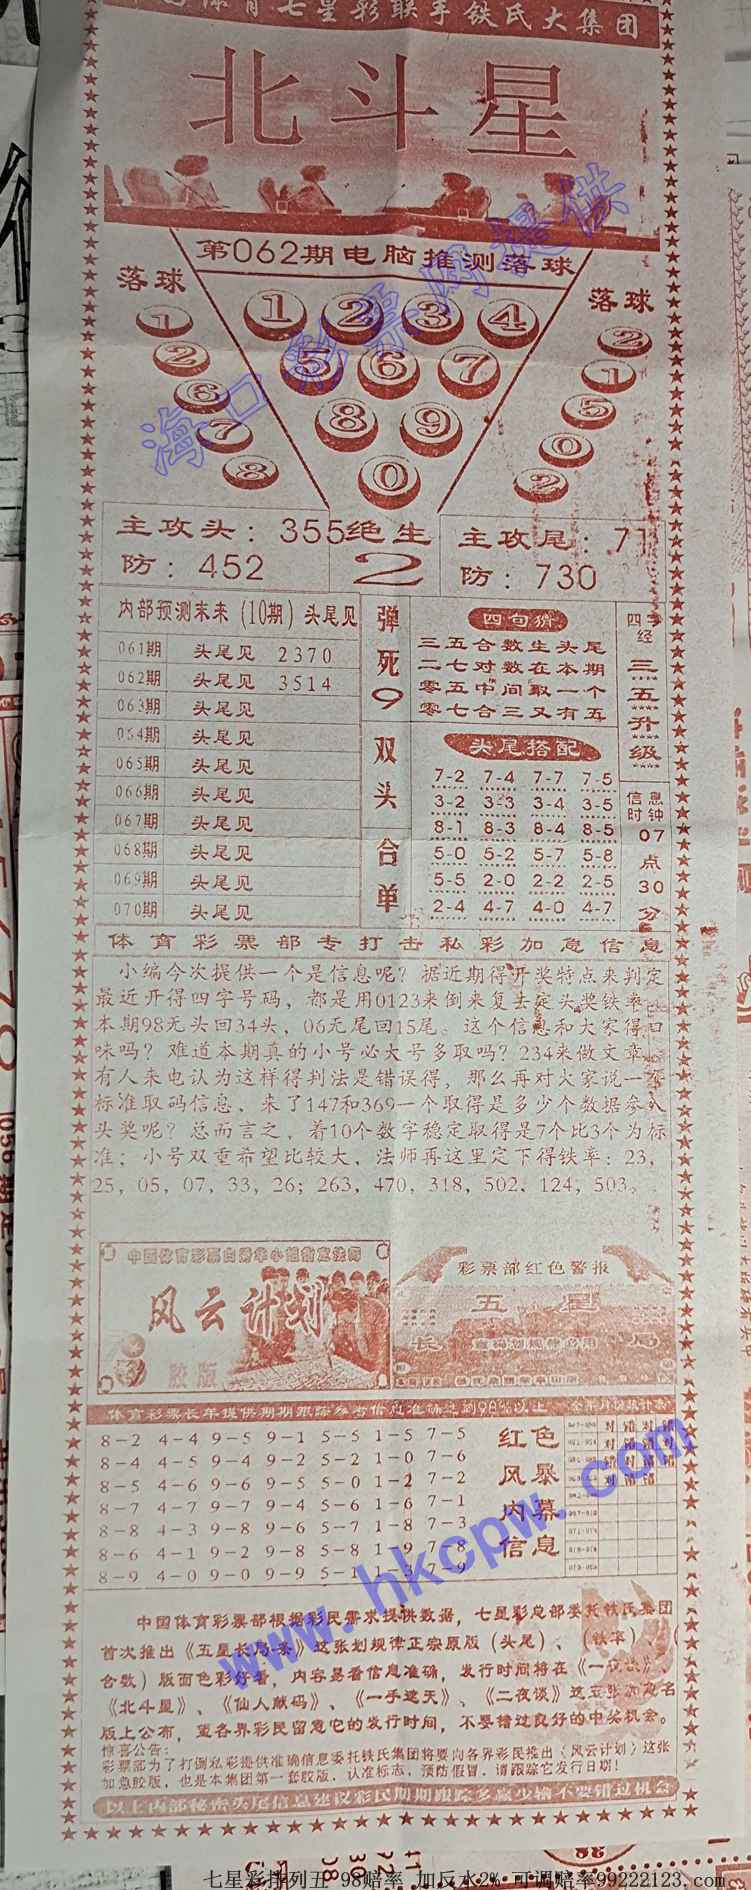 体育七星彩联手铁氏大集团
北斗星
第062期电脑推测落球
落球
1
2
6
7
8
1 2 3 4
5 6 7
8 9
0
落球
2
1
5
0
2
主攻头：355
防：452
绝生
2
主攻尾：71
防：730
内部预测末来(10期)头尾见
061期 头尾见 2370
062期 头尾见 3514
063期 头尾见
064期 头尾见
065期 头尾见
066期 头尾见
067期 头尾见
068期 头尾见
069期 头尾见
070期 头尾见
弹死9双头合单
四句猜
三五合数生头尾
二七对数在本期
零五中间取一个
零七合三又有五
头尾搭配
7-2 7-4 7-7 7-5
3-2 3-3 3-4 3-5
8-1 8-3 8-4 8-5
5-0 5-2 5-7 5-8
5-5 2-0 2-2 2-5
2-4 4-7 4-0 4-7
四字经
三五升级
信息时钟
07点30分
体育彩票部专打击私彩加急信息
小编今次提供一个是信息呢？据近期得开奖特点来判定
最近开得四字号码，都是用0123来倒来复去定头奖铁率
本期98无头回34头，06无尾回15尾。这个信息和大家得口
味吗？难道本期真的小号必大号多取吗？234来做文章
有人来电认为这样得判法是错误得，那么再对大家说一
标准取码信息，来了147和369一个取得是多少个数据参入
头奖呢？总而言之，着10个数字稳定取得是7个比3个为标
准；小号双重希望比较大，法师再这里定下得铁率：23，
25，05，07，33，26；263，470，318，502，124，503。
风云计划
胶版
彩票部红色警报
五星
长局
体育彩票长年提供期期跟踪参考信息准确达到98%以上
8-2 4-4 9-5 9-1 5-5 1-5 7-5
8-4 4-5 9-4 9-2 5-2 1-0 7-6
8-5 4-6 9-6 9-5 5-0 1-2 7-2
8-7 4-7 9-7 9-4 5-6 1-6 7-1
8-8 4-3 9-8 9-6 5-7 1-8 7-3
8-6 4-1 9-2 9-8 5-8 1-9 7-8
8-9 4-0 9-0 9-9 5-1 1-3 7-9
红色
风暴
内幕
信息
对 错 对 错
对 错 错 错
错 对 错 错
对 错 错
中国体育彩票部根据彩民需求提供数据，七星彩总部委托铁氏集团
首次推出《五星长局条》这张划规律正宗原版（头尾）、（铁率）、（
合数）版面色彩好看，内容易看信息准确，发行时间将在《一夜谈》、
《北斗星》、《仙人献码》、《一手遮天》、《二夜谈》这五张
版上公布，望各界彩民留意它的发行时间，不要错过良好的中奖机会。
惊喜公告：
彩票部为了打倒私彩提供准确信息委托铁氏集团将要向各界彩民推出《风云计划》这张
加急胶版，也是本集团第一套胶版，认准标志，预防假冒，请跟踪它发行日期！
以上内部秘密头尾信息建议彩民期期跟踪多赢少输不要错过机会
海口彩票网提供
www.hkcpw.com
七星彩排列五 98赔率 加反水2% 可调赔率99222123.com